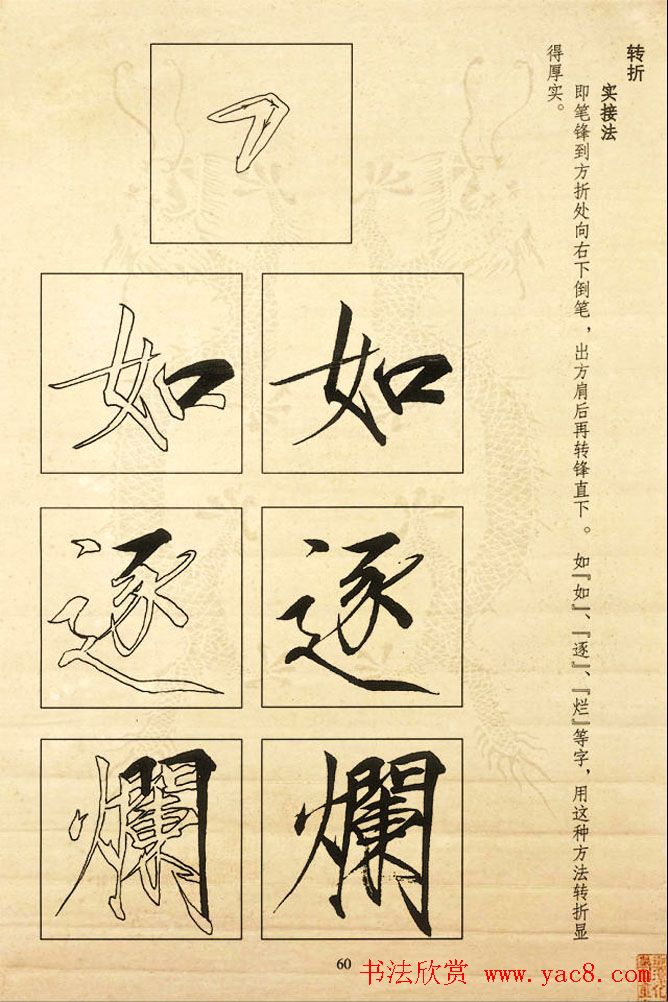 转折
实接法
即笔锋到方折处向右下倒笔，出方肩后再转锋直下。如『如』、『逐』、『烂』等字，用这种方法转折显
得厚实。
如 如
逐 逐
爛 爛
60
书法欣赏 www.yac8.com